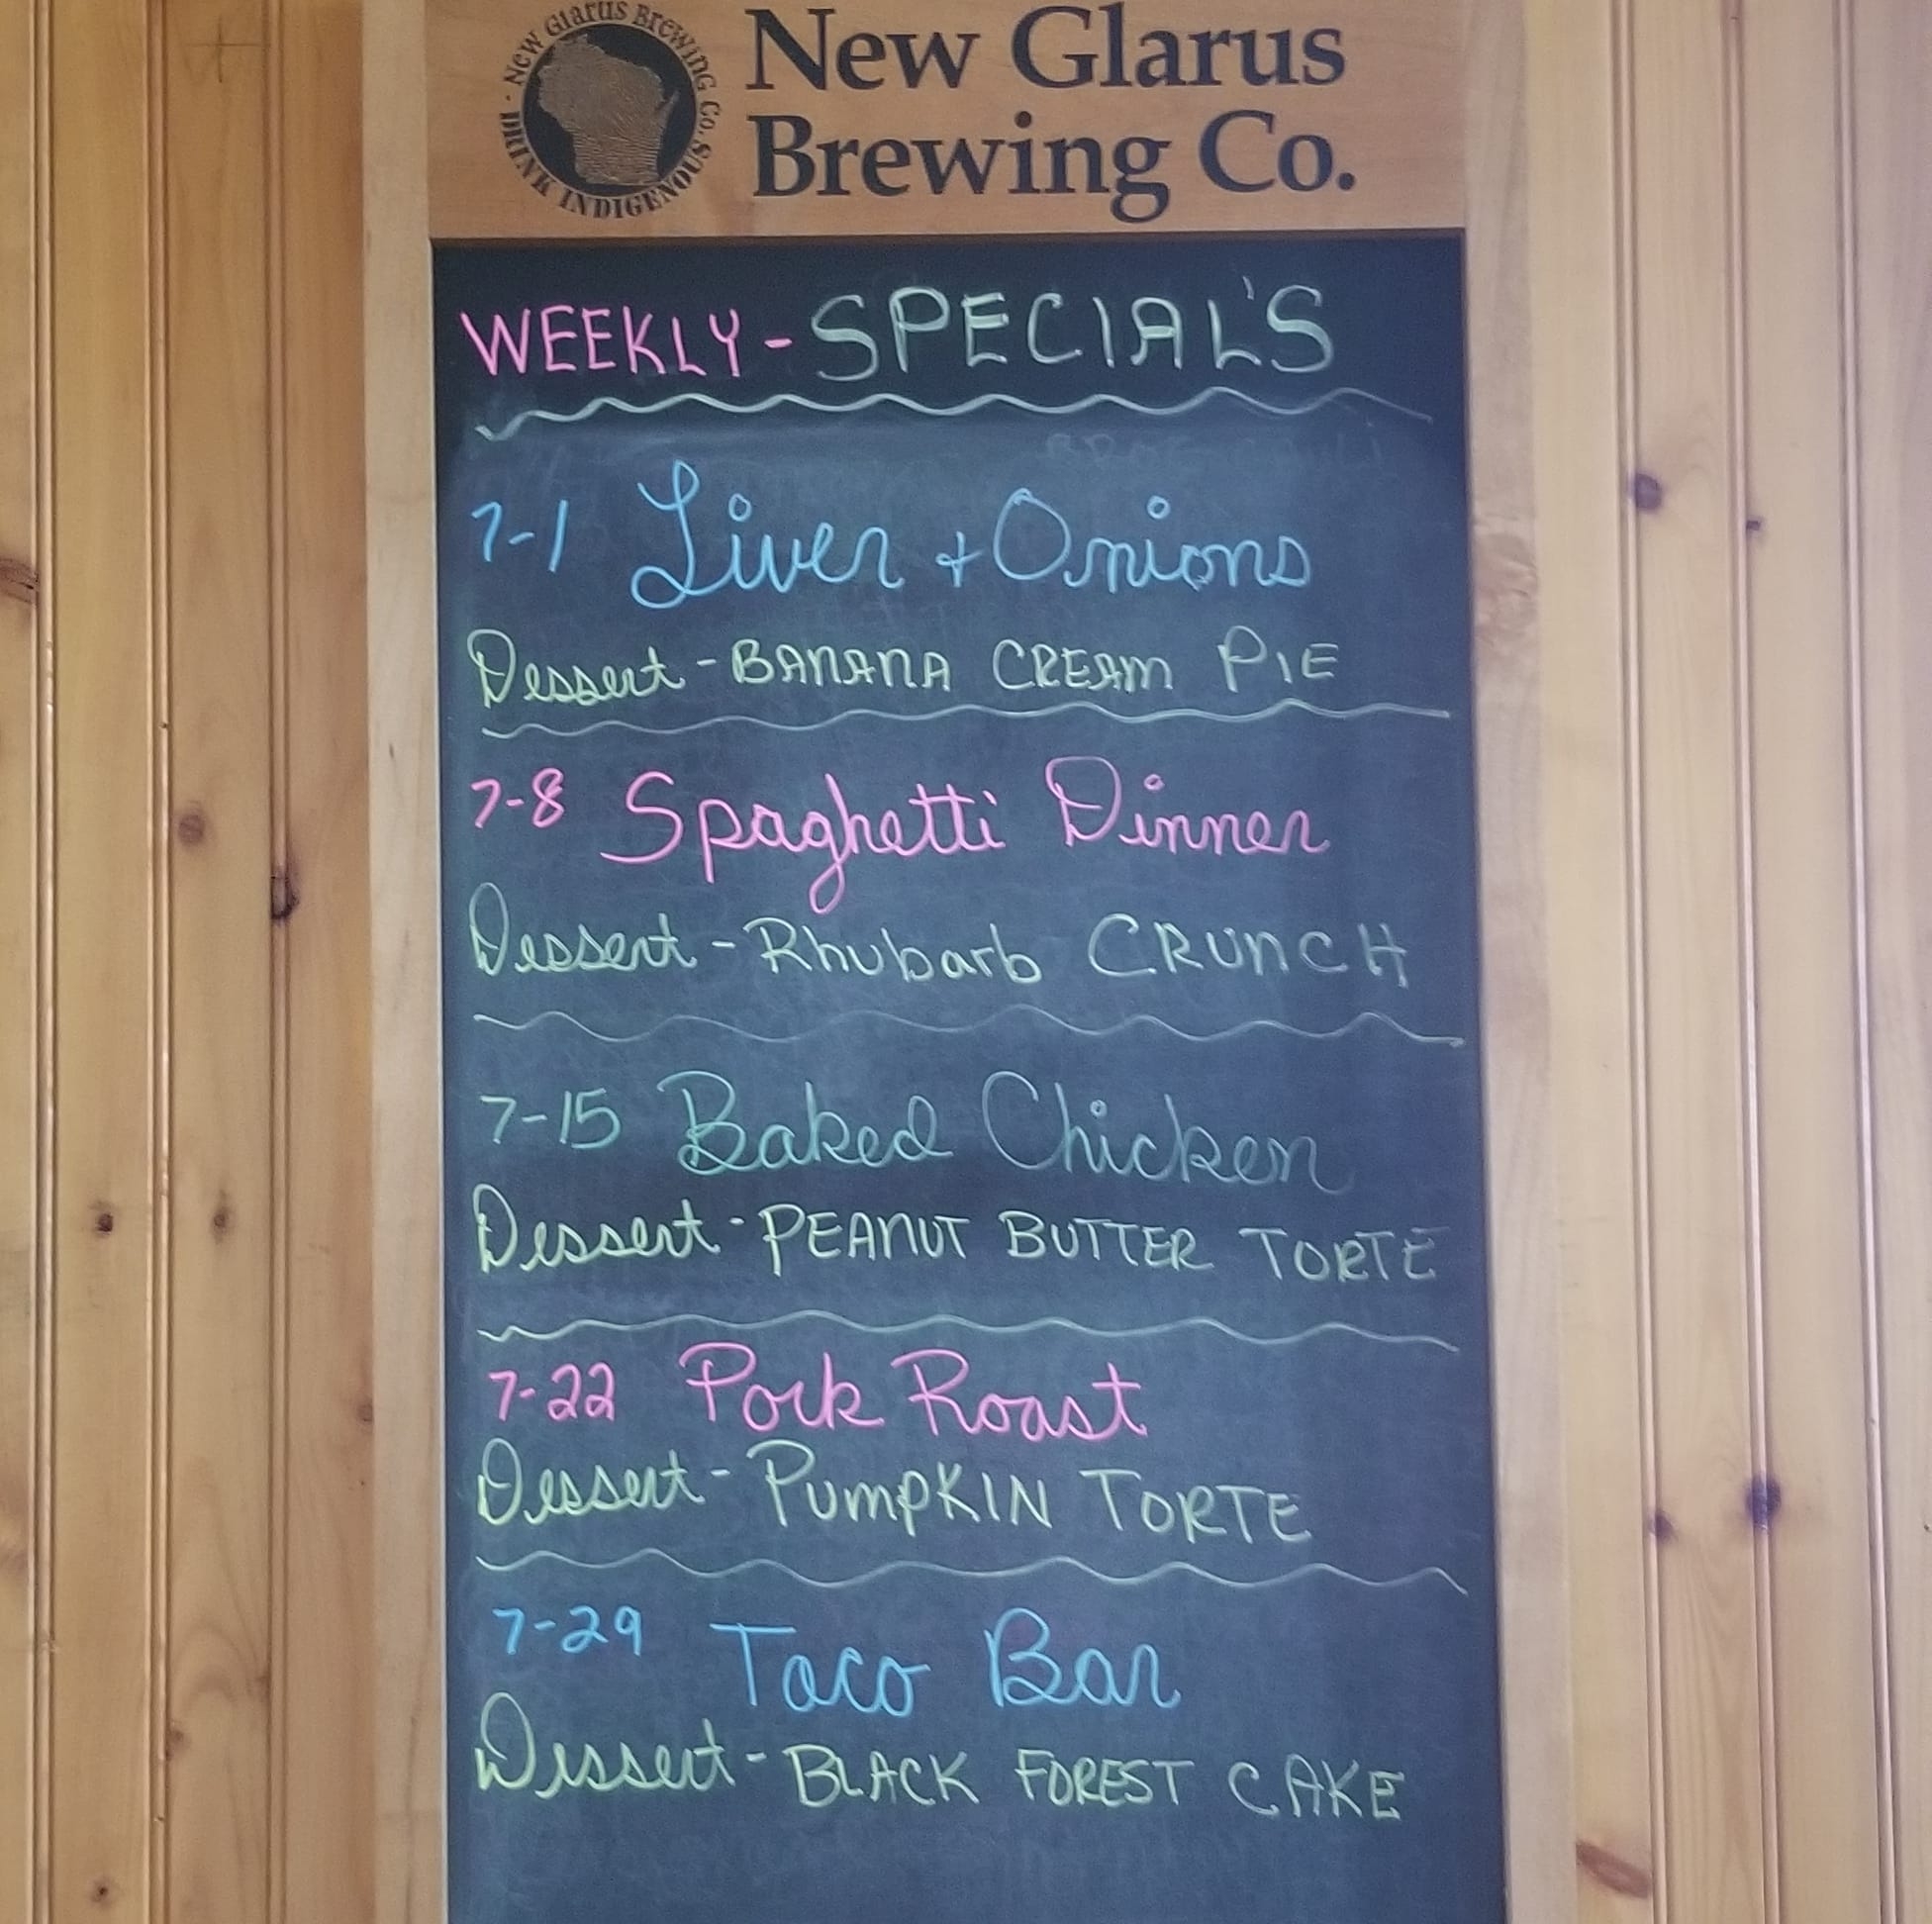 NEW GLARUS BREWING CO. · DRINK INDIGENOUS ·
New Glarus
Brewing Co.
WEEKLY - SPECIAL'S
7-1 Liver + Onions
Dessert - BANANA CREAM PIE
7-8 Spaghetti Dinner
Dessert - Rhubarb CRUNCH
7-15 Baked Chicken
Dessert - PEANUT BUTTER TORTE
7-22 Pork Roast
Dessert - PUMPKIN TORTE
7-29 Taco Bar
Dessert - BLACK FOREST CAKE